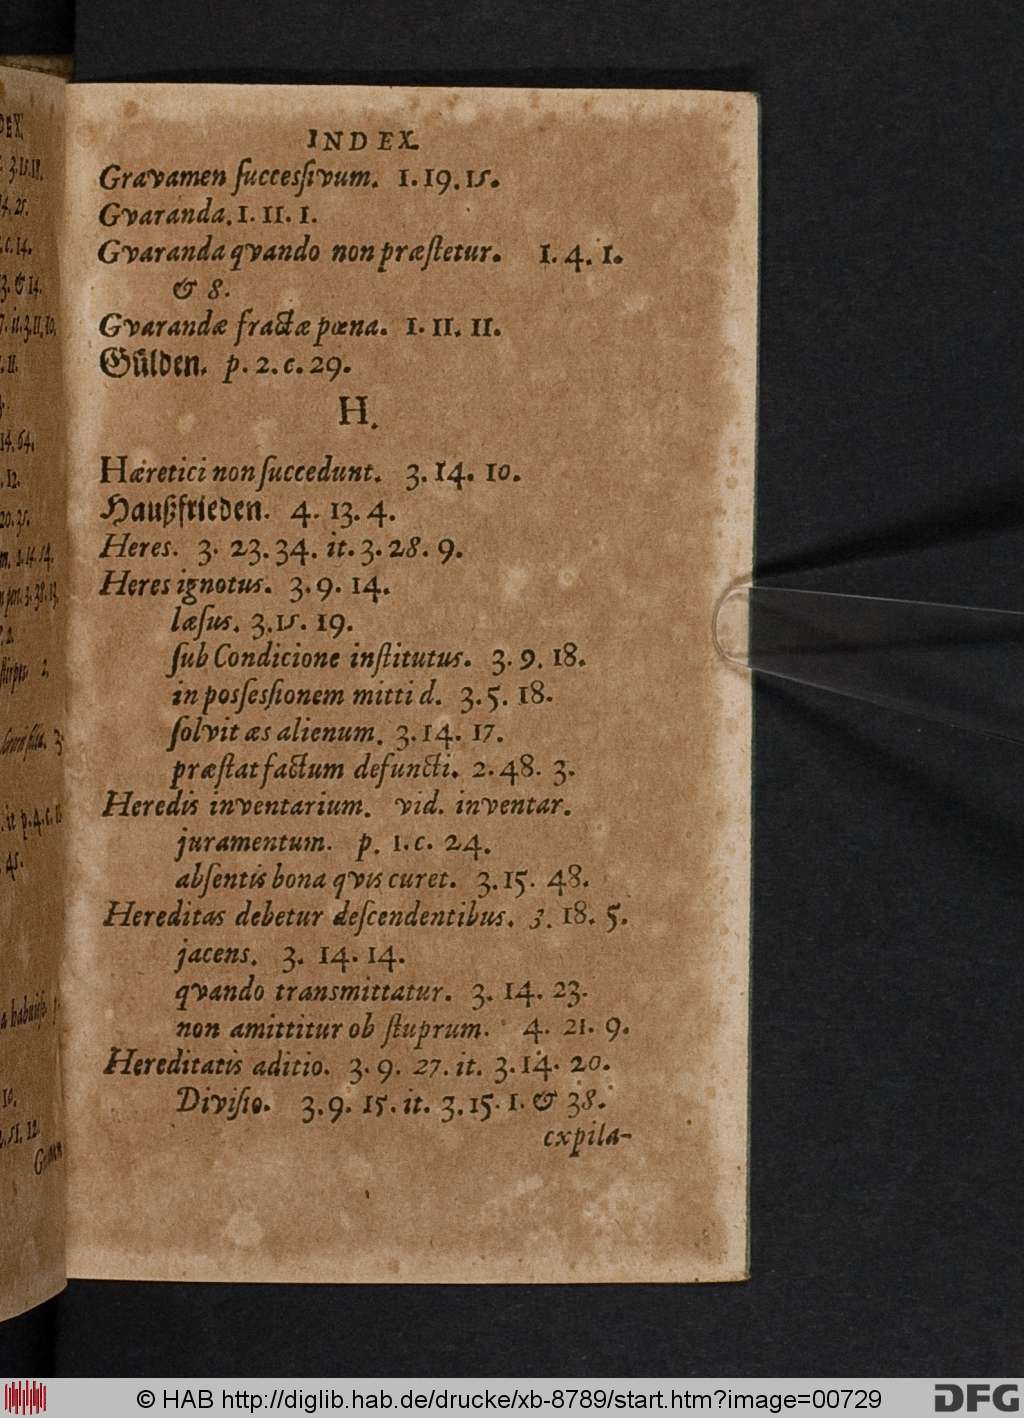 INDEX.
Gravamen successivum. 1. 19. 15.
Gvaranda. 1. 11. 1.
Gvaranda qvando non præstetur. 1. 4. 1.
& 8.
Gvarandæ fractæ pœna. 1. 11. 11.
Gülden. p. 2. c. 29.
H.
Hæretici non succedunt. 3. 14. 10.
Haußfrieden. 4. 13. 4.
Heres. 3. 23. 34. it. 3. 28. 9.
Heres ignotus. 3. 9. 14.
læsus. 3. 15. 19.
sub Condicione institutus. 3. 9. 18.
in possessionem mitti d. 3. 5. 18.
solvit æs alienum. 3. 14. 17.
præstat factum defuncti. 2. 48. 3.
Heredis inventarium. vid. inventar.
juramentum. p. 1. c. 24.
absentis bona qvis curet. 3. 15. 48.
Hereditas debetur descendentibus. 3. 18. 5.
jacens. 3. 14. 14.
qvando transmittatur. 3. 14. 23.
non amittitur ob stuprum. 4. 21. 9.
Hereditatis aditio. 3. 9. 27. it. 3. 14. 20.
Divisio. 3. 9. 15. it. 3. 15. 1. & 38.
expila-
© HAB http://diglib.hab.de/drucke/xb-8789/start.htm?image=00729
DFG